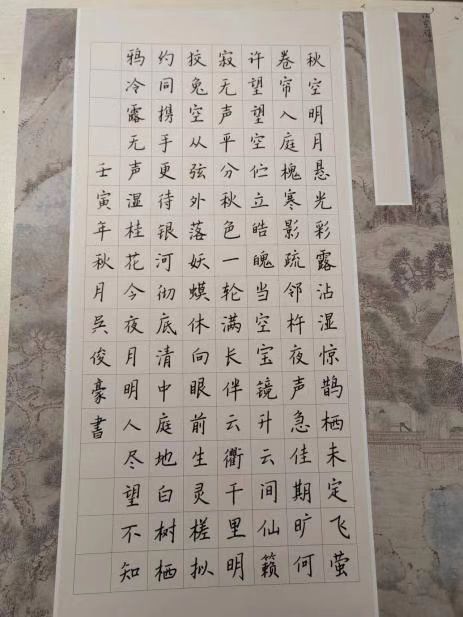 秋空明月悬光彩露沾湿惊鹊栖未定飞萤
卷帘入庭槐寒影疏邻杵夜声急佳期旷何
许望望空伫立皓魄当空宝镜升云间仙籁
寂无声平分秋色一轮满长伴云衢千里明
狡兔空从弦外落妖蟆休向眼前生灵槎拟
约同携手更待银河彻底清中庭地白树栖
鸦冷露无声湿桂花今夜月明人尽望不知
壬寅年秋月吴俊豪書